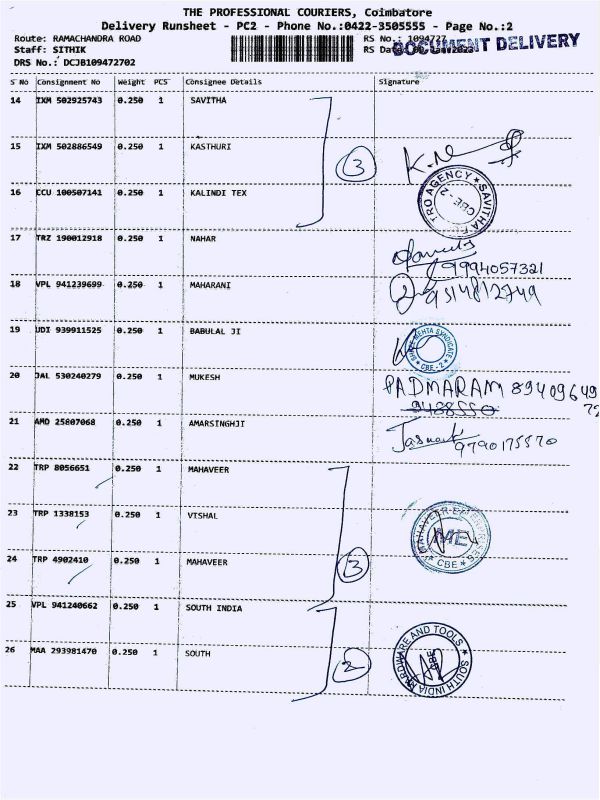 THE PROFESSIONAL COURIERS, Coimbatore
Delivery Runsheet - PC2 - Phone No.:0422-3505555 - Page No.:2
Route: RAMACHANDRA ROAD RS No.: 1094727
Staff: SITHIK RS Date:
DOCUMENT DELIVERY
DRS No.: DCJB109472702
S No Consignment No Weight PCS Consignee Details Signature
14 IXM 502925743 0.250 1 SAVITHA
15 IXM 502886549 0.250 1 KASTHURI
3
16 CCU 100507141 0.250 1 KALINDI TEX
TRO AGENCY ★ SAVITHA
CBE - 2
17 TRZ 190012918 0.250 1 NAHAR
9994057321
18 VPL 941239699 0.250 1 MAHARANI
9514812749
19 UDI 939911525 0.250 1 BABULAL JI
MEHTA SYNDICATE
★ CBE - 2 ★
20 JAL 530240279 0.250 1 MUKESH
PADMARAM 89409649
72
21 AMD 25807068 0.250 1 AMARSINGHJI
9790175570
22 TRP 8056651 0.250 1 MAHAVEER
23 TRP 1338153 0.250 1 VISHAL
MAHAVEER ENTERPRISES
ME
★ CBE ★
24 TRP 4902410 0.250 1 MAHAVEER
3
25 VPL 941240662 0.250 1 SOUTH INDIA
26 MAA 293981470 0.250 1 SOUTH
2
SOUTH INDIA HARDWARE AND TOOLS
CBE